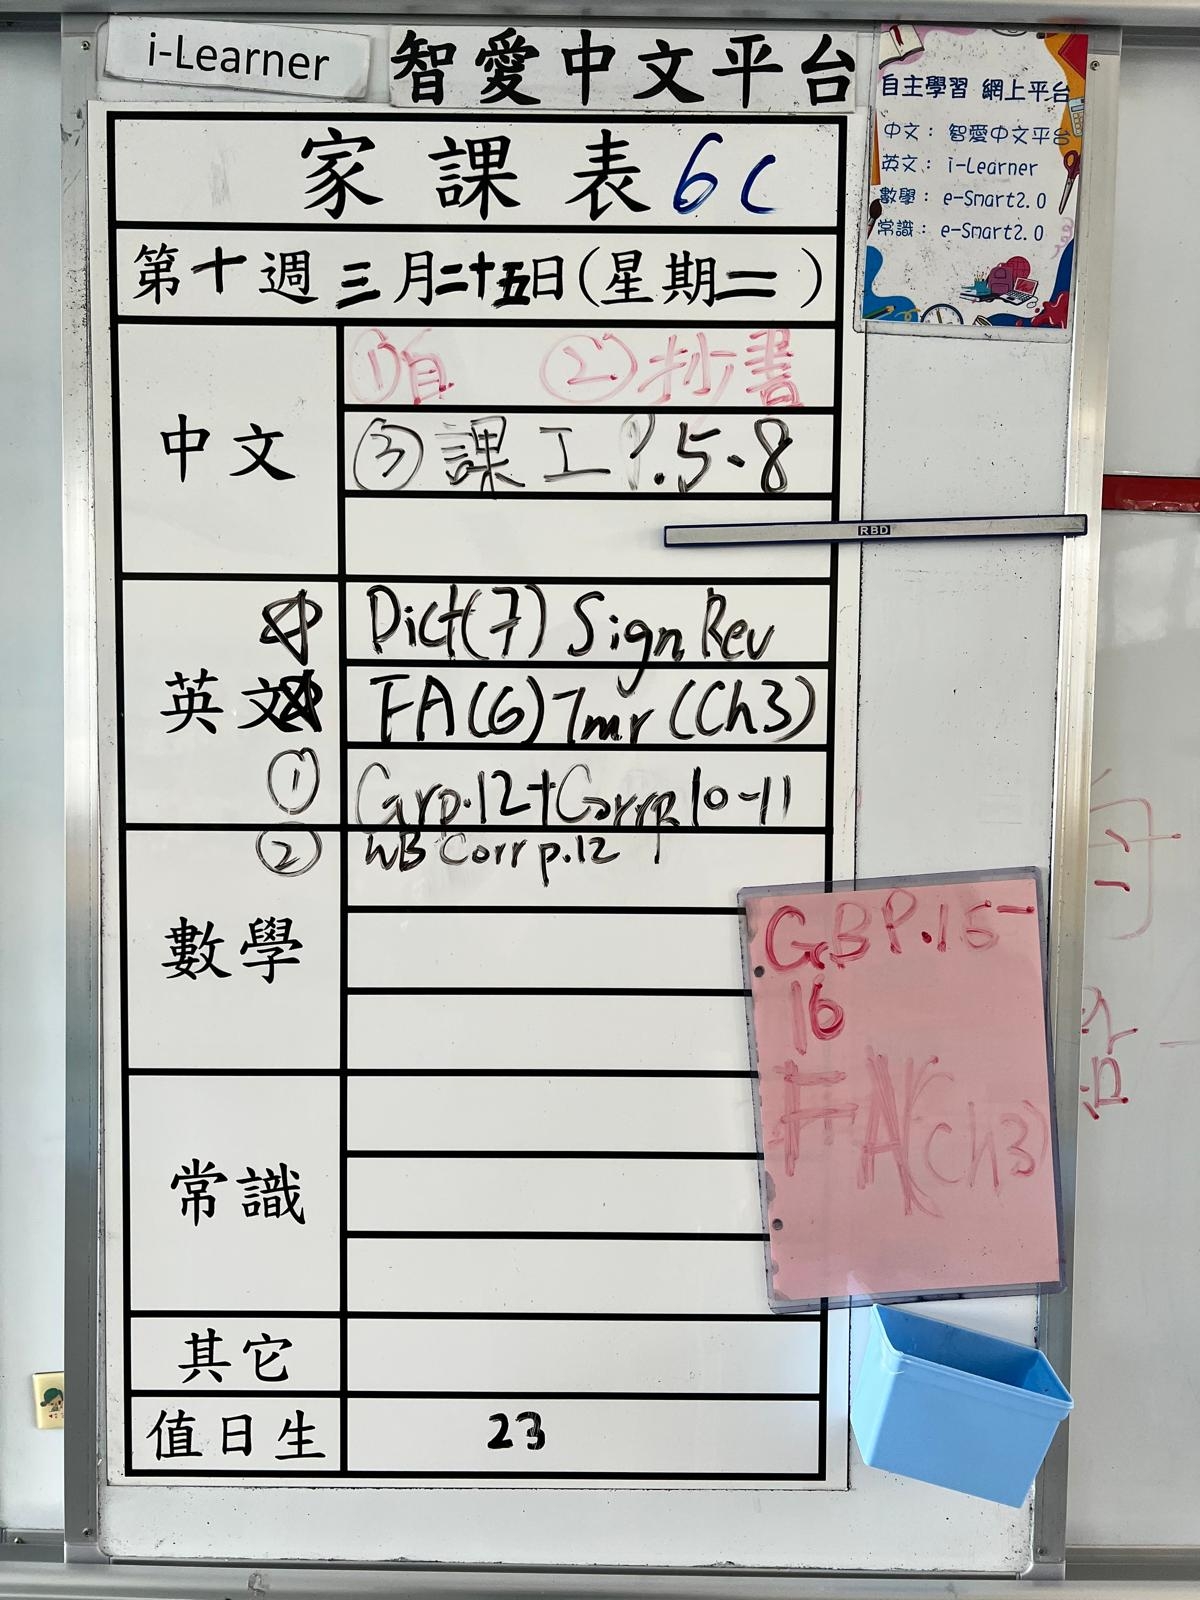 i-Learner 智愛中文平台
自主學習 網上平台
中文：智愛中文平台
英文：i-Learner
數學：e-Smart2.0
常識：e-Smart2.0
家課表 6C
第十週三月二十五日(星期二)
中文
①自 ②抄書
③課工 P.5-8
RBD
英文
Dict(7) Sign Rev
FA(6) Tmr (Ch3)
① Grp.12+Corr p.10-11
② WB Corr p.12
數學
GBP.15-
16
FA(Ch3)
常識
其它
值日生 23